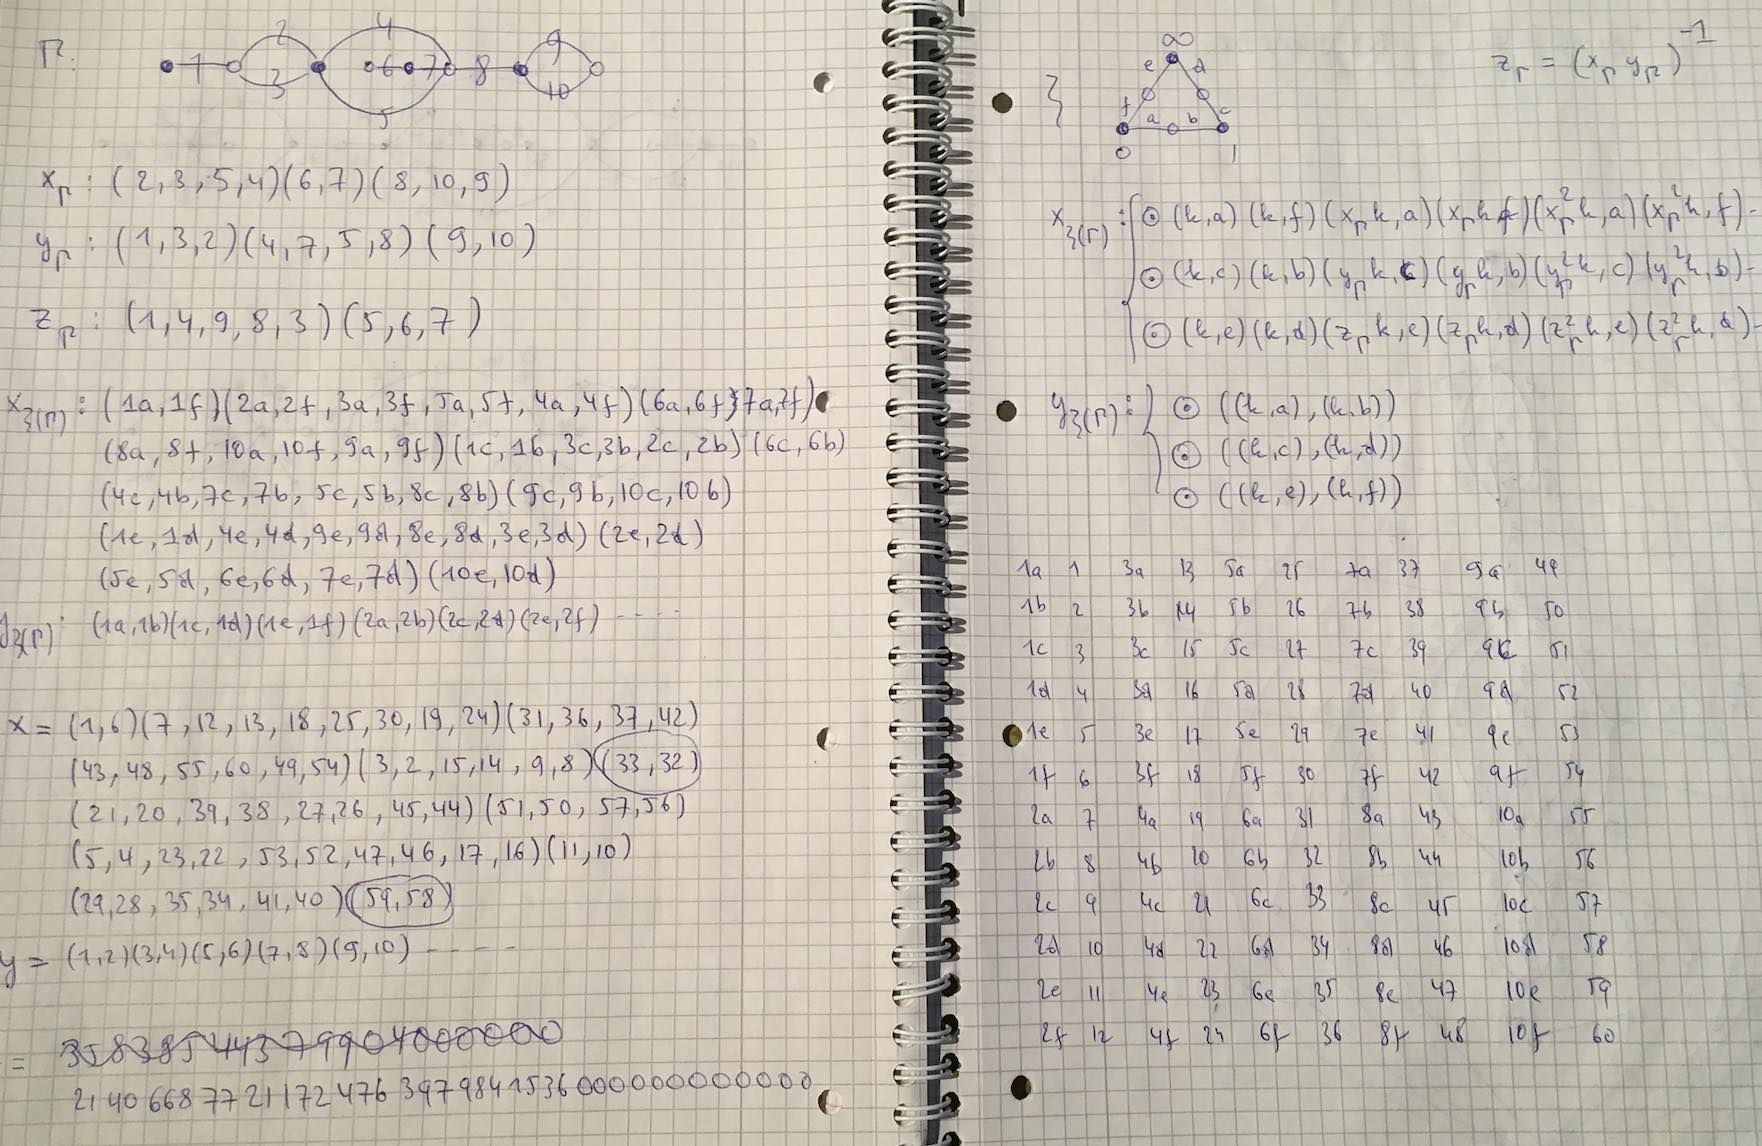 Γ:
1 2 3 4 5 6 7 8 9 10
x_Γ : (2,3,5,4)(6,7)(8,10,9)
y_Γ : (1,3,2)(4,7,5,8)(9,10)
z_Γ : (1,4,9,8,3)(5,6,7)
x_3(Γ) : (1a,1f)(2a,2f,3a,3f,5a,5f,4a,4f)(6a,6f,7a,7f)
(8a,8f,10a,10f,9a,9f)(1c,1b,3c,3b,2c,2b)(6c,6b)
(4c,4b,7c,7b,5c,5b,8c,8b)(9c,9b,10c,10b)
(1e,1d,4e,4d,9e,9d,8e,8d,3e,3d)(2e,2d)
(5e,5d,6e,6d,7e,7d)(10e,10d)
y_3(Γ) : (1a,1b)(1c,1d)(1e,1f)(2a,2b)(2c,2d)(2e,2f) ----
x = (1,6)(7,12,13,18,25,30,19,24)(31,36,37,42)
(43,48,55,60,49,54)(3,2,15,14,9,8)(33,32)
(21,20,39,38,27,26,45,44)(51,50,57,56)
(5,4,23,22,53,52,47,46,17,16)(11,10)
(29,28,35,34,41,40)(59,58)
y = (1,2)(3,4)(5,6)(7,8)(9,10) ----
= 3583854437990400 0000
21406687721172476397984153600000000000000
3
∞
e d
f c
a b
0 1
z_Γ = (x_Γ y_Γ)^-1
x_3(Γ) : ⊙ (k,a)(k,f)(x_Γ k,a)(x_Γ k,f)(x_Γ^2 k,a)(x_Γ^2 k,f)-
⊙ (k,c)(k,b)(y_Γ k,c)(y_Γ k,b)(y_Γ^2 k,c)(y_Γ^2 k,b)-
⊙ (k,e)(k,d)(z_Γ k,e)(z_Γ k,d)(z_Γ^2 k,e)(z_Γ^2 k,d)-
y_3(Γ) : ⊙ ((k,a),(k,b))
⊙ ((k,c),(k,d))
⊙ ((k,e),(k,f))
1a 1 3a 13 5a 25 7a 37 9a 49
1b 2 3b 14 5b 26 7b 38 9b 50
1c 3 3c 15 5c 27 7c 39 9c 51
1d 4 3d 16 5d 28 7d 40 9d 52
1e 5 3e 17 5e 29 7e 41 9e 53
1f 6 3f 18 5f 30 7f 42 9f 54
2a 7 4a 19 6a 31 8a 43 10a 55
2b 8 4b 20 6b 32 8b 44 10b 56
2c 9 4c 21 6c 33 8c 45 10c 57
2d 10 4d 22 6d 34 8d 46 10d 58
2e 11 4e 23 6e 35 8e 47 10e 59
2f 12 4f 24 6f 36 8f 48 10f 60